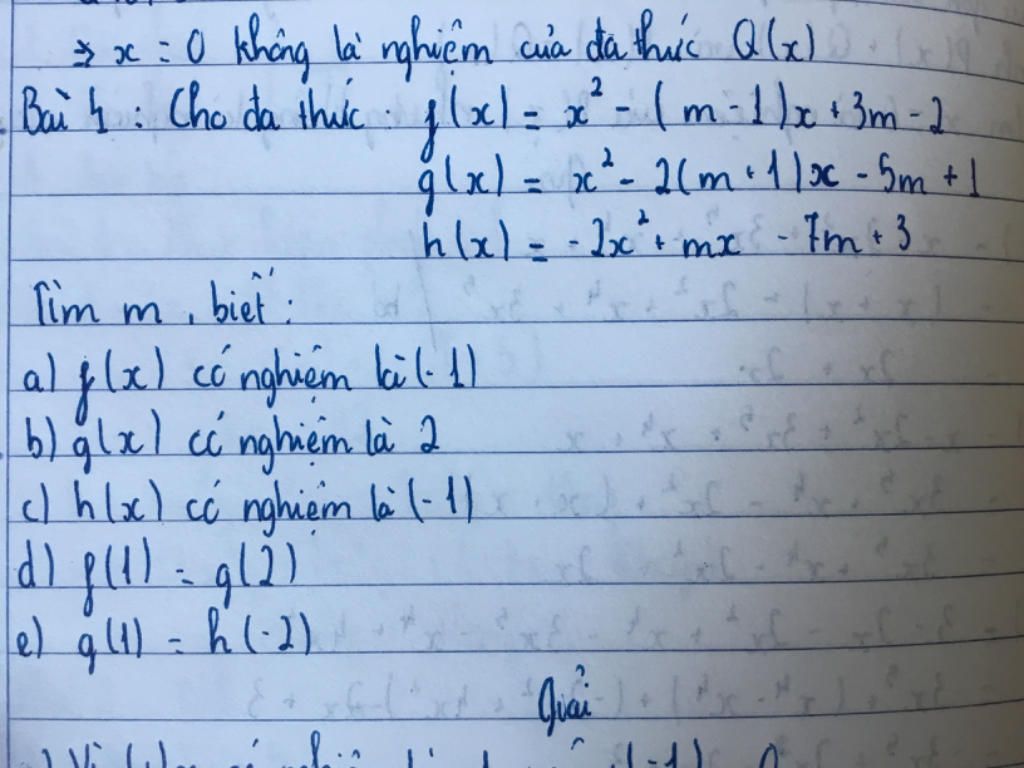 => x = 0 không là nghiệm của đa thức Q(x)
Bài 4 : Cho đa thức : f(x) = x² - (m - 1)x + 3m - 2
g(x) = x² - 2(m + 1)x - 5m + 1
h(x) = -2x² + mx - 7m + 3
Tìm m, biết :
a) f(x) có nghiệm là (-1)
b) g(x) có nghiệm là 2
c) h(x) có nghiệm là (-1)
d) f(1) = g(2)
e) g(1) = h(-2)
Giải